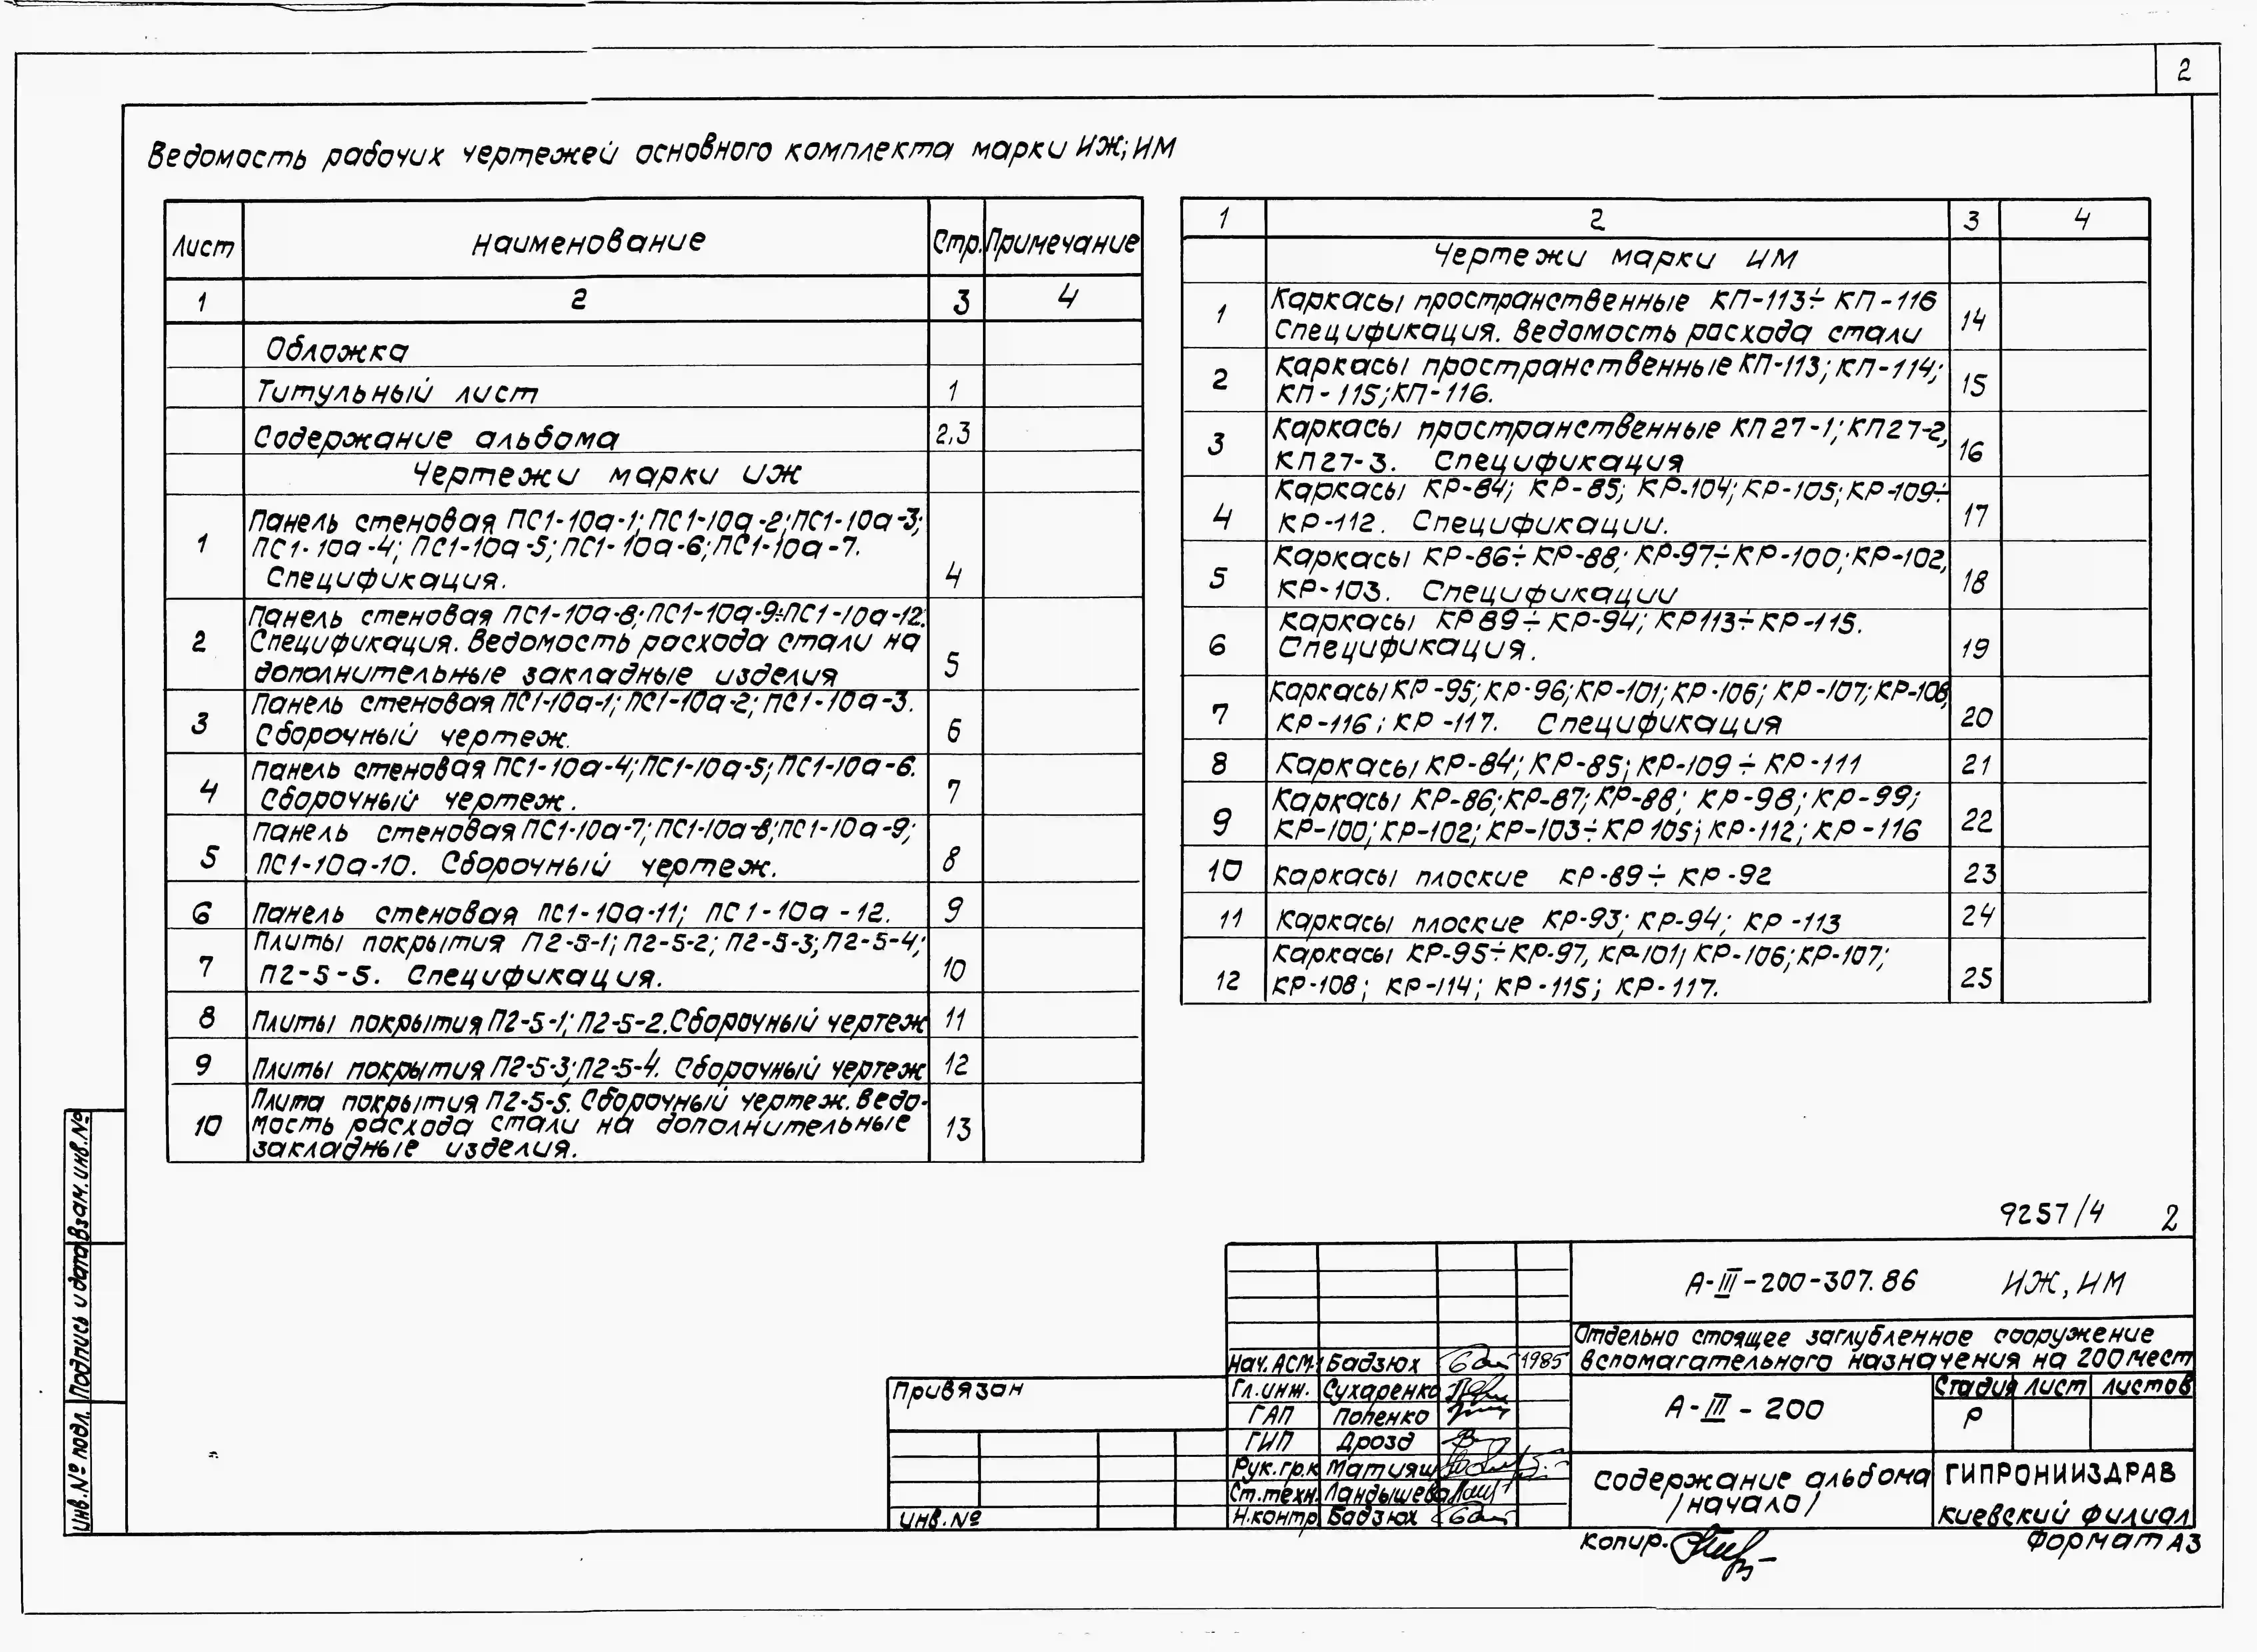 2
Ведомость рабочих чертежей основного комплекта марки ИЖ; ИМ
Лист Наименование Стр. Примечание
1 2 3 4
Обложка
Титульный лист 1
Содержание альбома 2,3
Чертежи марки ИЖ
Панель стеновая ПС1-10а-1; ПС1-10а-2; ПС1-10а-3;
1 ПС1-10а-4; ПС1-10а-5; ПС1-10а-6; ПС1-10а-7.
Спецификация. 4
Панель стеновая ПС1-10а-8; ПС1-10а-9÷ПС1-10а-12.
2 Спецификация. Ведомость расхода стали на
дополнительные закладные изделия 5
Панель стеновая ПС1-10а-1; ПС1-10а-2; ПС1-10а-3.
3 Сборочный чертеж. 6
Панель стеновая ПС1-10а-4; ПС1-10а-5; ПС1-10а-6.
4 Сборочный чертеж. 7
Панель стеновая ПС1-10а-7; ПС1-10а-8; ПС1-10а-9;
5 ПС1-10а-10. Сборочный чертеж. 8
6 Панель стеновая ПС1-10а-11; ПС1-10а-12. 9
Плиты покрытия П2-5-1; П2-5-2; П2-5-3; П2-5-4;
7 П2-5-5. Спецификация. 10
8 Плиты покрытия П2-5-1; П2-5-2. Сборочный чертеж 11
9 Плиты покрытия П2-5-3; П2-5-4. Сборочный чертеж 12
Плита покрытия П2-5-5. Сборочный чертеж. Ведо-
10 мость расхода стали на дополнительные 13
закладные изделия.
1 2 3 4
Чертежи марки ИМ
Каркасы пространственные КП-113÷КП-116
1 Спецификация. Ведомость расхода стали 14
Каркасы пространственные КП-113; КП-114;
2 КП-115; КП-116. 15
Каркасы пространственные КП27-1; КП27-2,
3 КП27-3. Спецификация 16
Каркасы КР-84; КР-85; КР-104; КР-105; КР-109÷
4 КР-112. Спецификации. 17
Каркасы КР-86÷КР-88; КР-97÷КР-100; КР-102,
5 КР-103. Спецификации 18
Каркасы КР89÷КР-94; КР113÷КР-115.
6 Спецификация. 19
Каркасы КР-95; КР-96; КР-101; КР-106; КР-107; КР-108,
7 КР-116; КР-117. Спецификация 20
8 Каркасы КР-84; КР-85; КР-109÷КР-111 21
Каркасы КР-86; КР-87; КР-88; КР-98; КР-99;
9 КР-100; КР-102; КР-103÷КР105; КР-112; КР-116 22
10 Каркасы плоские КР-89÷КР-92 23
11 Каркасы плоские КР-93; КР-94; КР-113 24
Каркасы КР-95÷КР-97, КР-101; КР-106; КР-107;
12 КР-108; КР-114; КР-115; КР-117. 25
Взам.инв.№
Подпись и дата
Инв.№ подл.
9257/4 2
А-III-200-307.86 ИЖ, ИМ
Отдельно стоящее заглубленное сооружение
вспомагательного назначения на 200 мест
Нач.АСМ-1 Бадзюх 1985
Гл.инж. Сухаренко
ГАП Попенко
ГИП Дрозд
Рук.гр.к Матияш
Ст.техн. Ландышева
Н.контр. Бадзюх
Привязан
Инв.№
А-III-200
Стадия Лист Листов
Р
Содержание альбома
/начало/
ГИПРОНИИЗДРАВ
Киевский филиал
Копир.
Формат А3